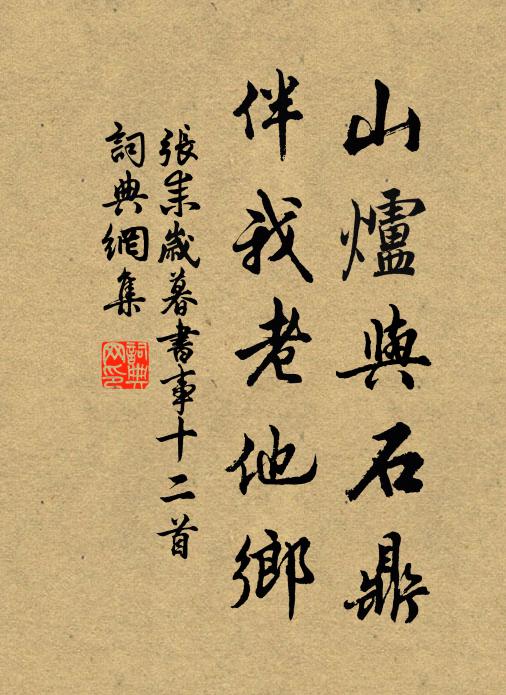 山爐與石鼎
伴我老他鄉
張耒歲暮書事十二首
詞典網集
詞典网印